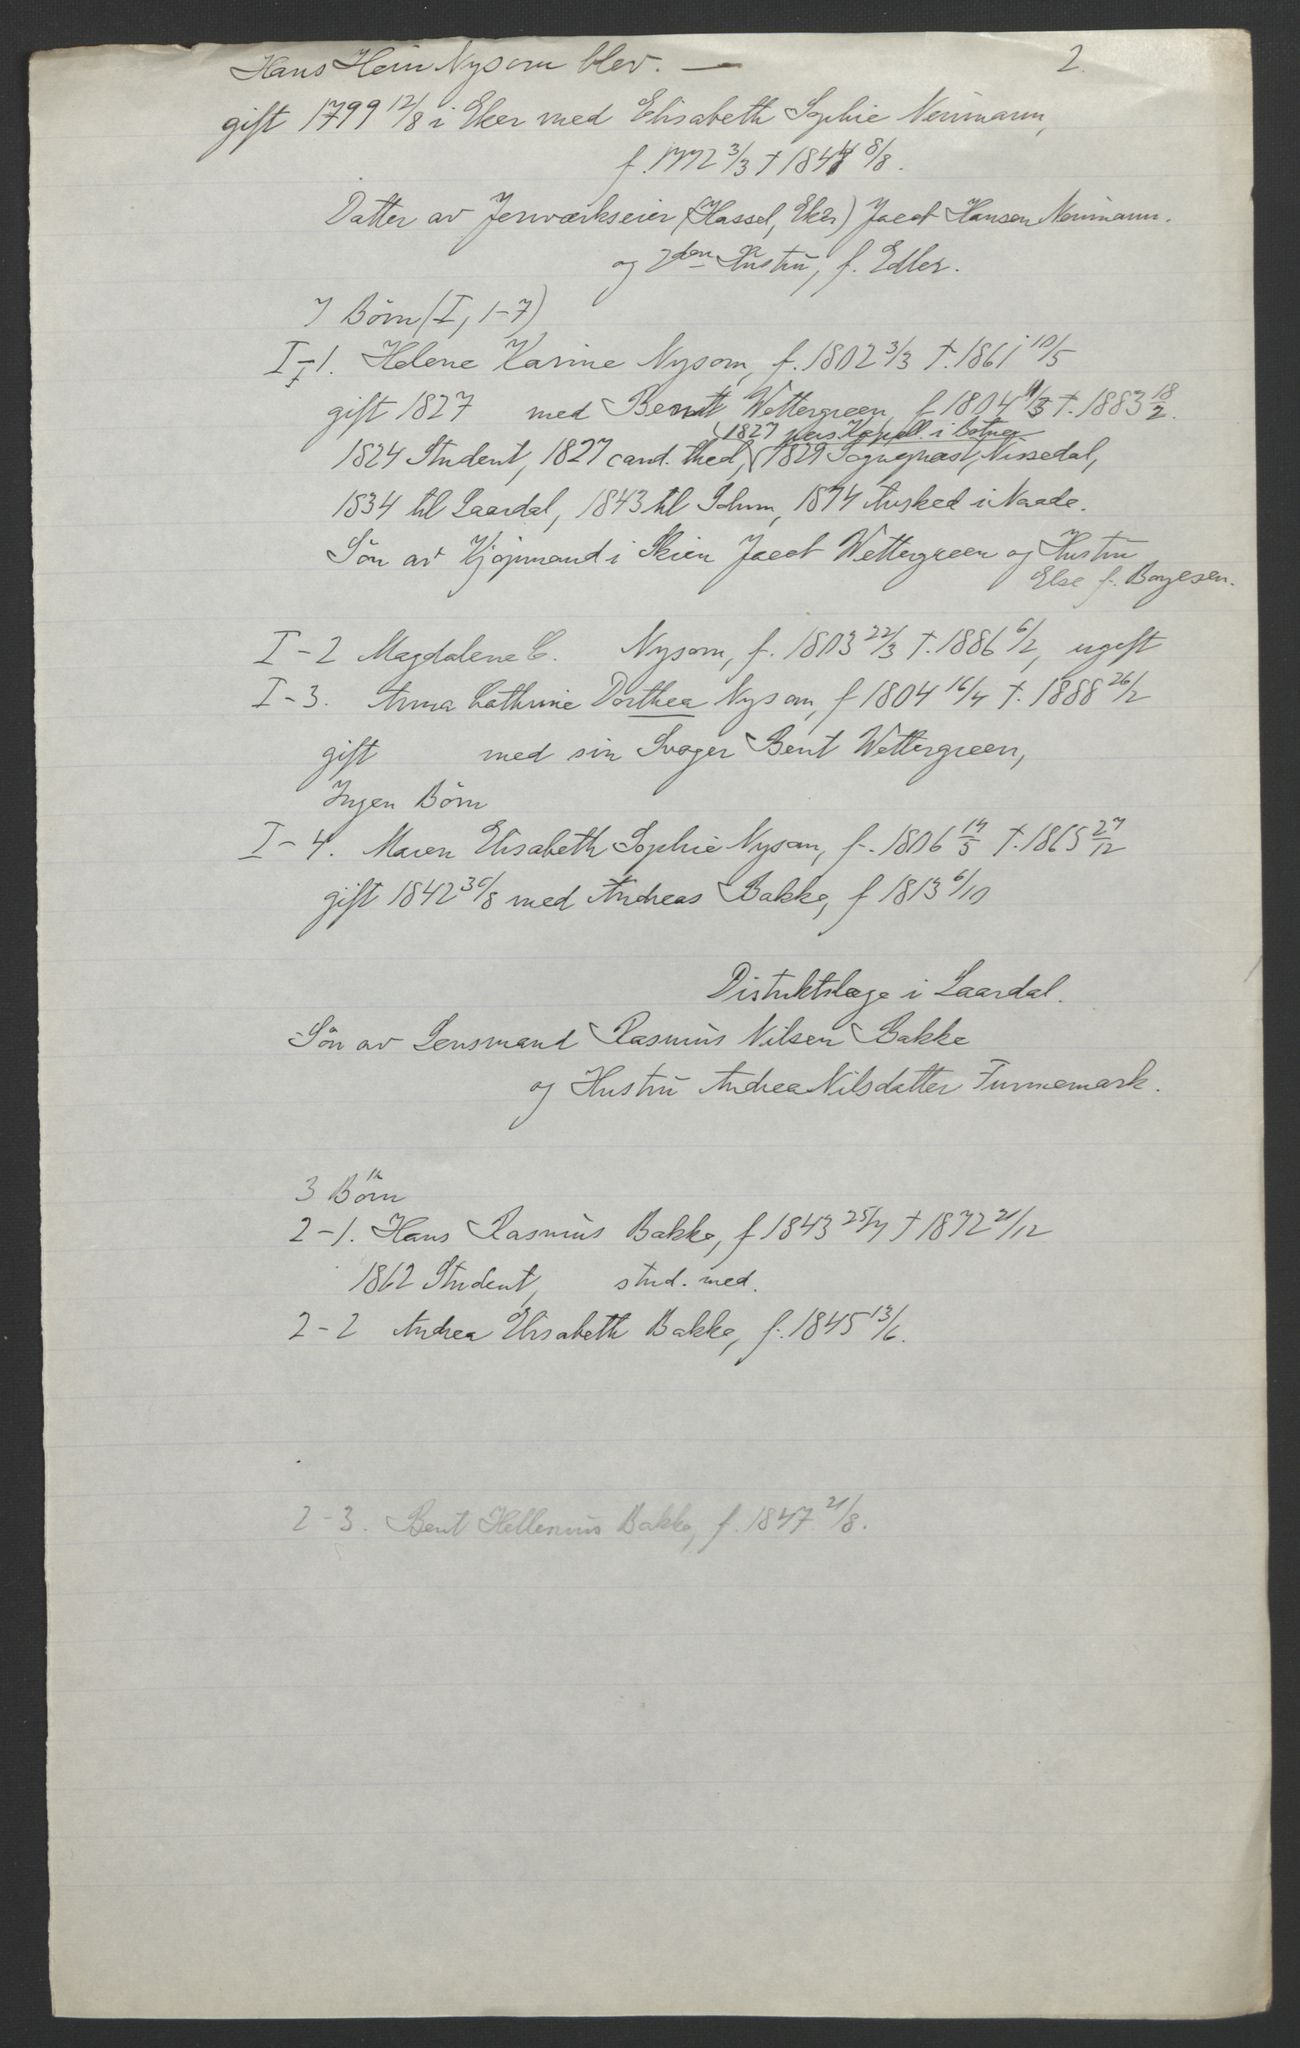 Hans Hein Nysom blev. — 2.
gift 1799 12/8 i Eker med Elisabeth Sophie Neumann,
f. 1772 3/3 † 1844 8/8.
Datter av Jernværkseier (Hassel, Eker) Jacob Hansen Neumann.
og 2den Hustru, f. Edler.
7 Börn (I, 1-7)
I-1. Helene Karine Nysom, f. 1802 3/3 †. 1861 10/5
gift 1827 med Bent Wettergreen, f 1804 /3 †. 1883 18/2.
(1827 pers. Kapell. i Botne)
1824 Student, 1827 cand. theol, 1829 Sogneprest, Nissedal,
1834 til Laardal, 1843 til Solum, 1874 Avsked i Naade.
Sön av Kjöpmand i Skien Jacob Wettergreen og Hustru
Else f. Boyesen.
I-2 Magdalene C. Nysom, f. 1803 22/3 †. 1886 6/2, ugift
I-3. Anna Cathrine Dorthea Nysom, f 1804 16/4 †. 1888 26/2
gift med sin Svoger Bent Wettergreen,
Ingen Börn
I-4. Maren Elisabeth Sophie Nysom, f. 1806 14/5 †. 1865 27/12
gift 1842 30/8 med Andreas Bakke, f 1813 6/10
Distriktslæge i Laardal.
Sön av Lensmand Rasmus Nilsen Bakke
og Hustru Andrea Nilsdatter Furnemark.
3 Börn
2-1. Hans Rasmus Bakke, f 1843 25/7 † 1872 21/12
1862 Student, stud. med.
2-2 Andrea Elisabeth Bakke, f. 1845 13/6.
2-3. Bent Hellenius Bakke, f. 1847 21/8.